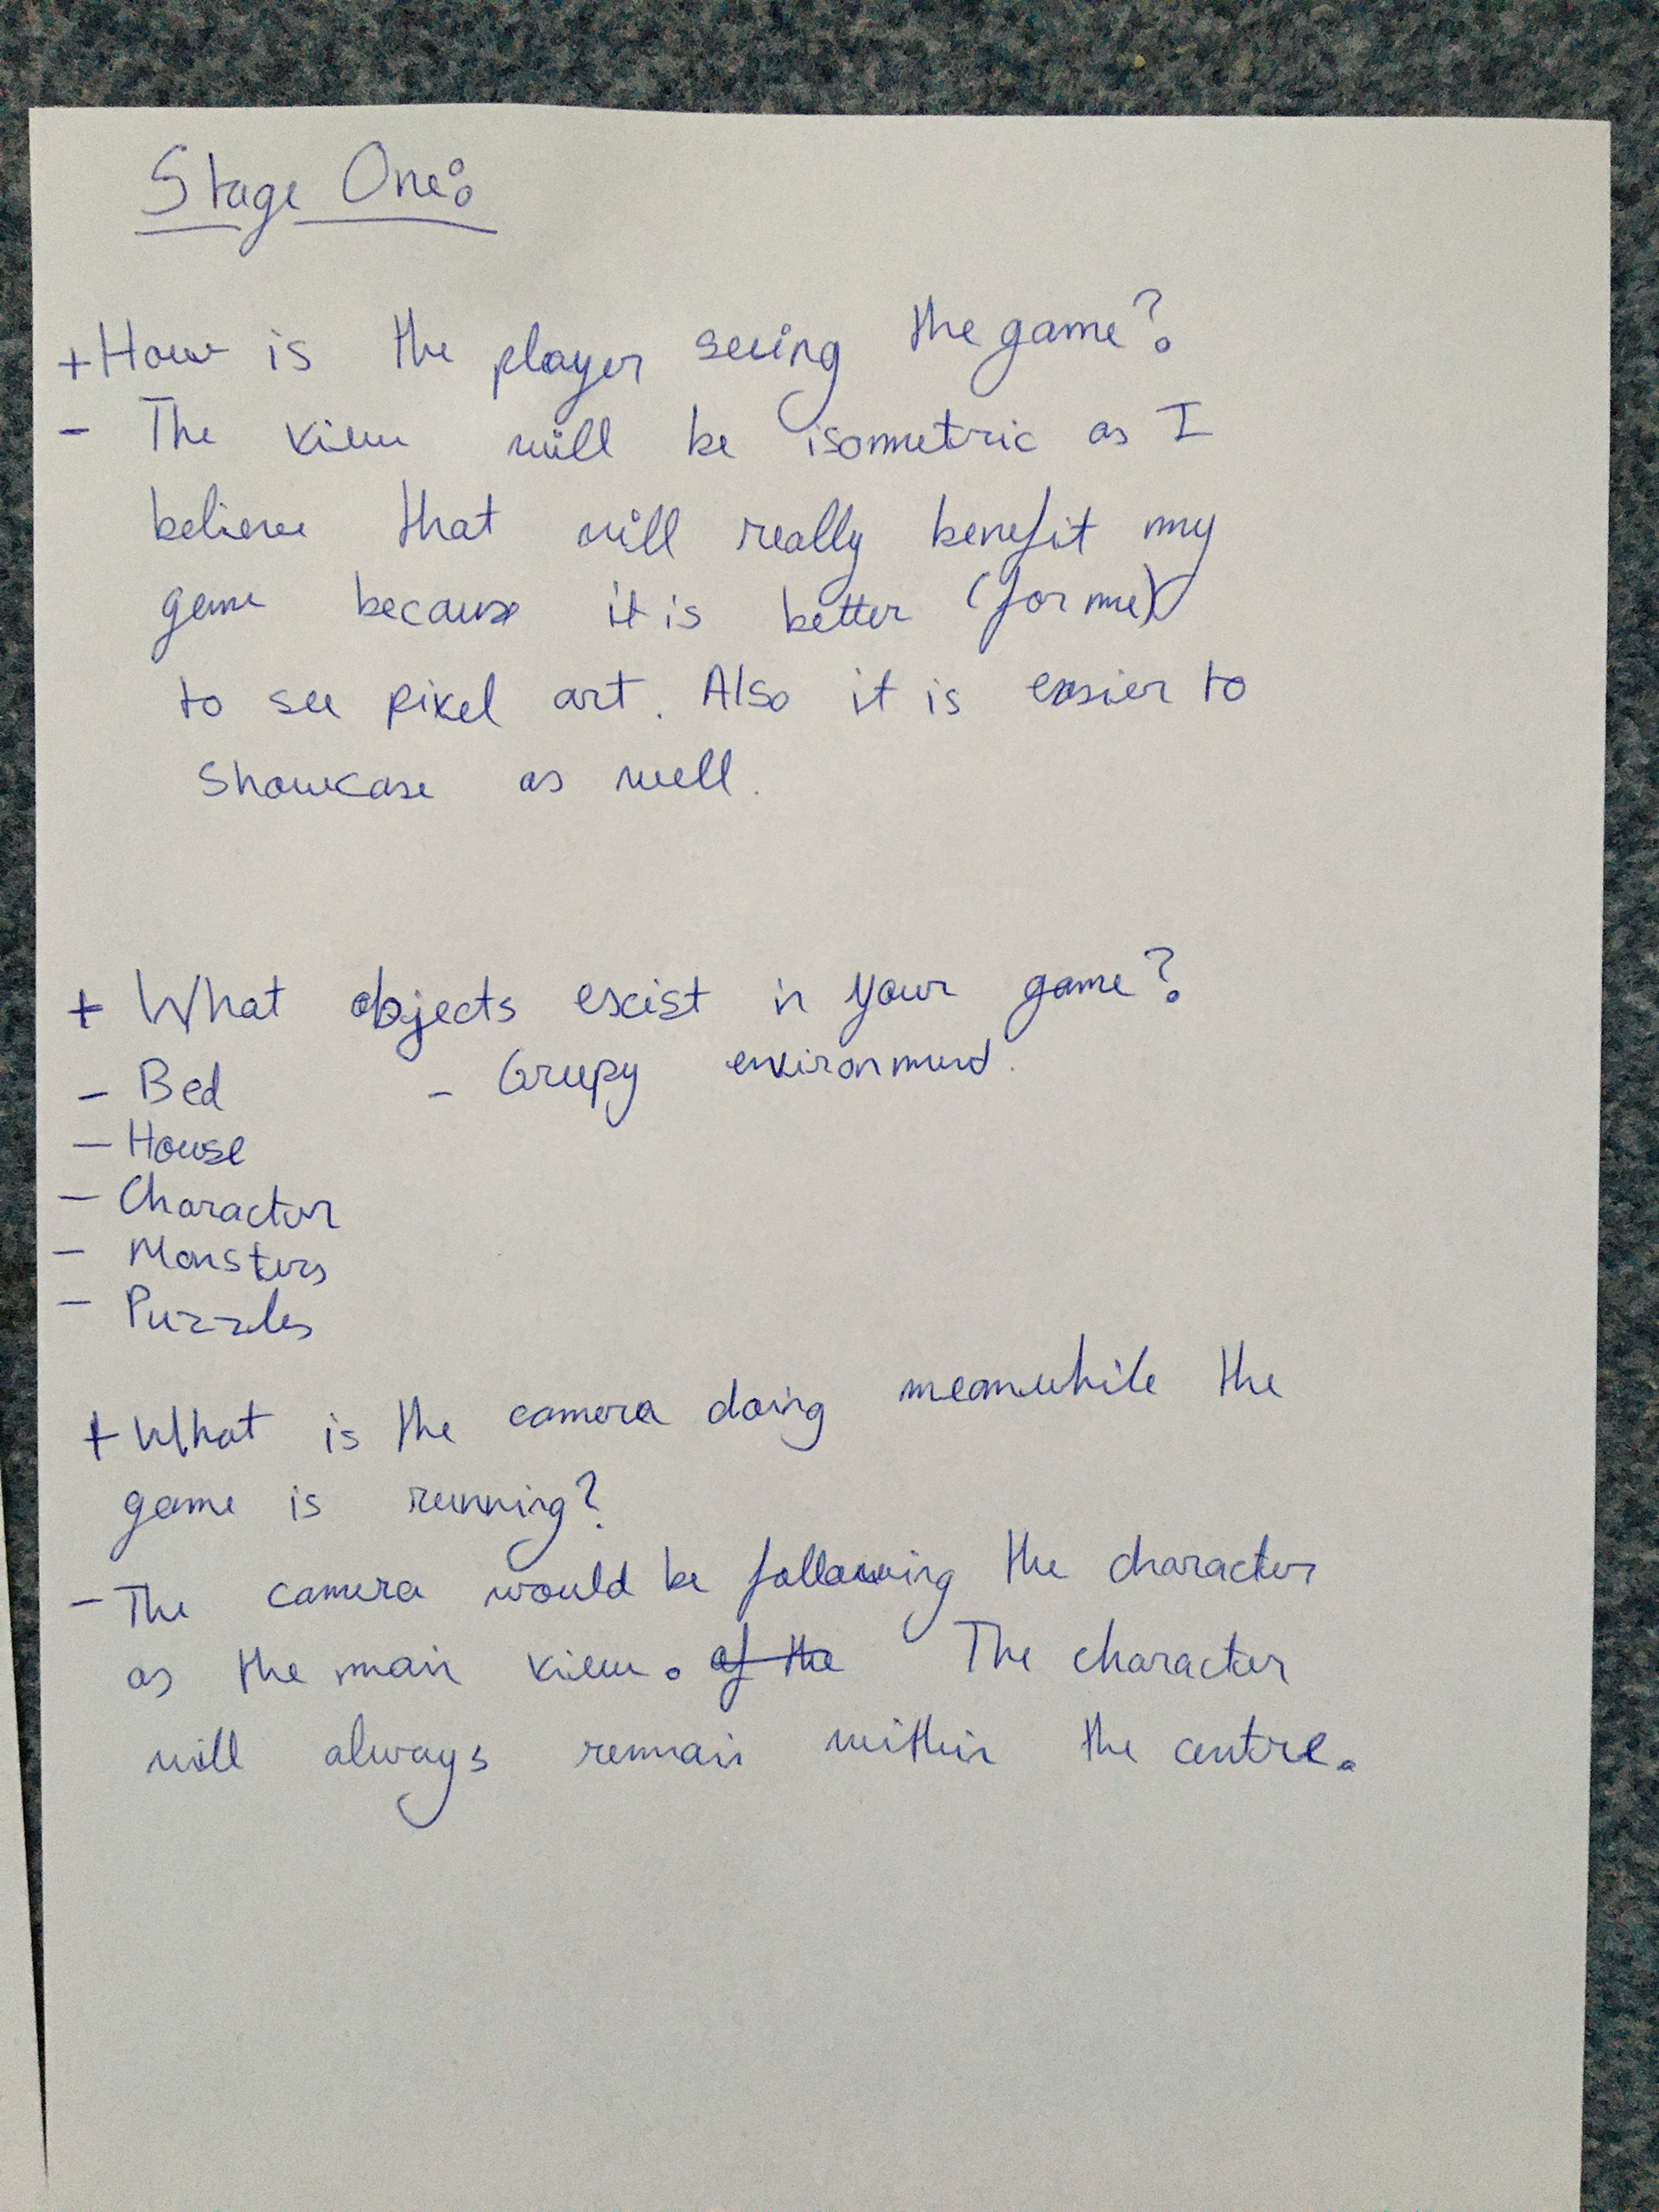 Stage One:
+ How is the player seeing the game?
- The view will be isometric as I
believe that will really benefit my
game because it is better (for me)
to see pixel art. Also it is easier to
showcase as well.
+ What objects excist in your game?
- Bed - environment.
- House
- Character
- Monsters
- Puzzles
+ What is the camera doing meanwhile the
game is running?
- The camera would be following the character
as the main view. of the The character
will always remain within the centre.